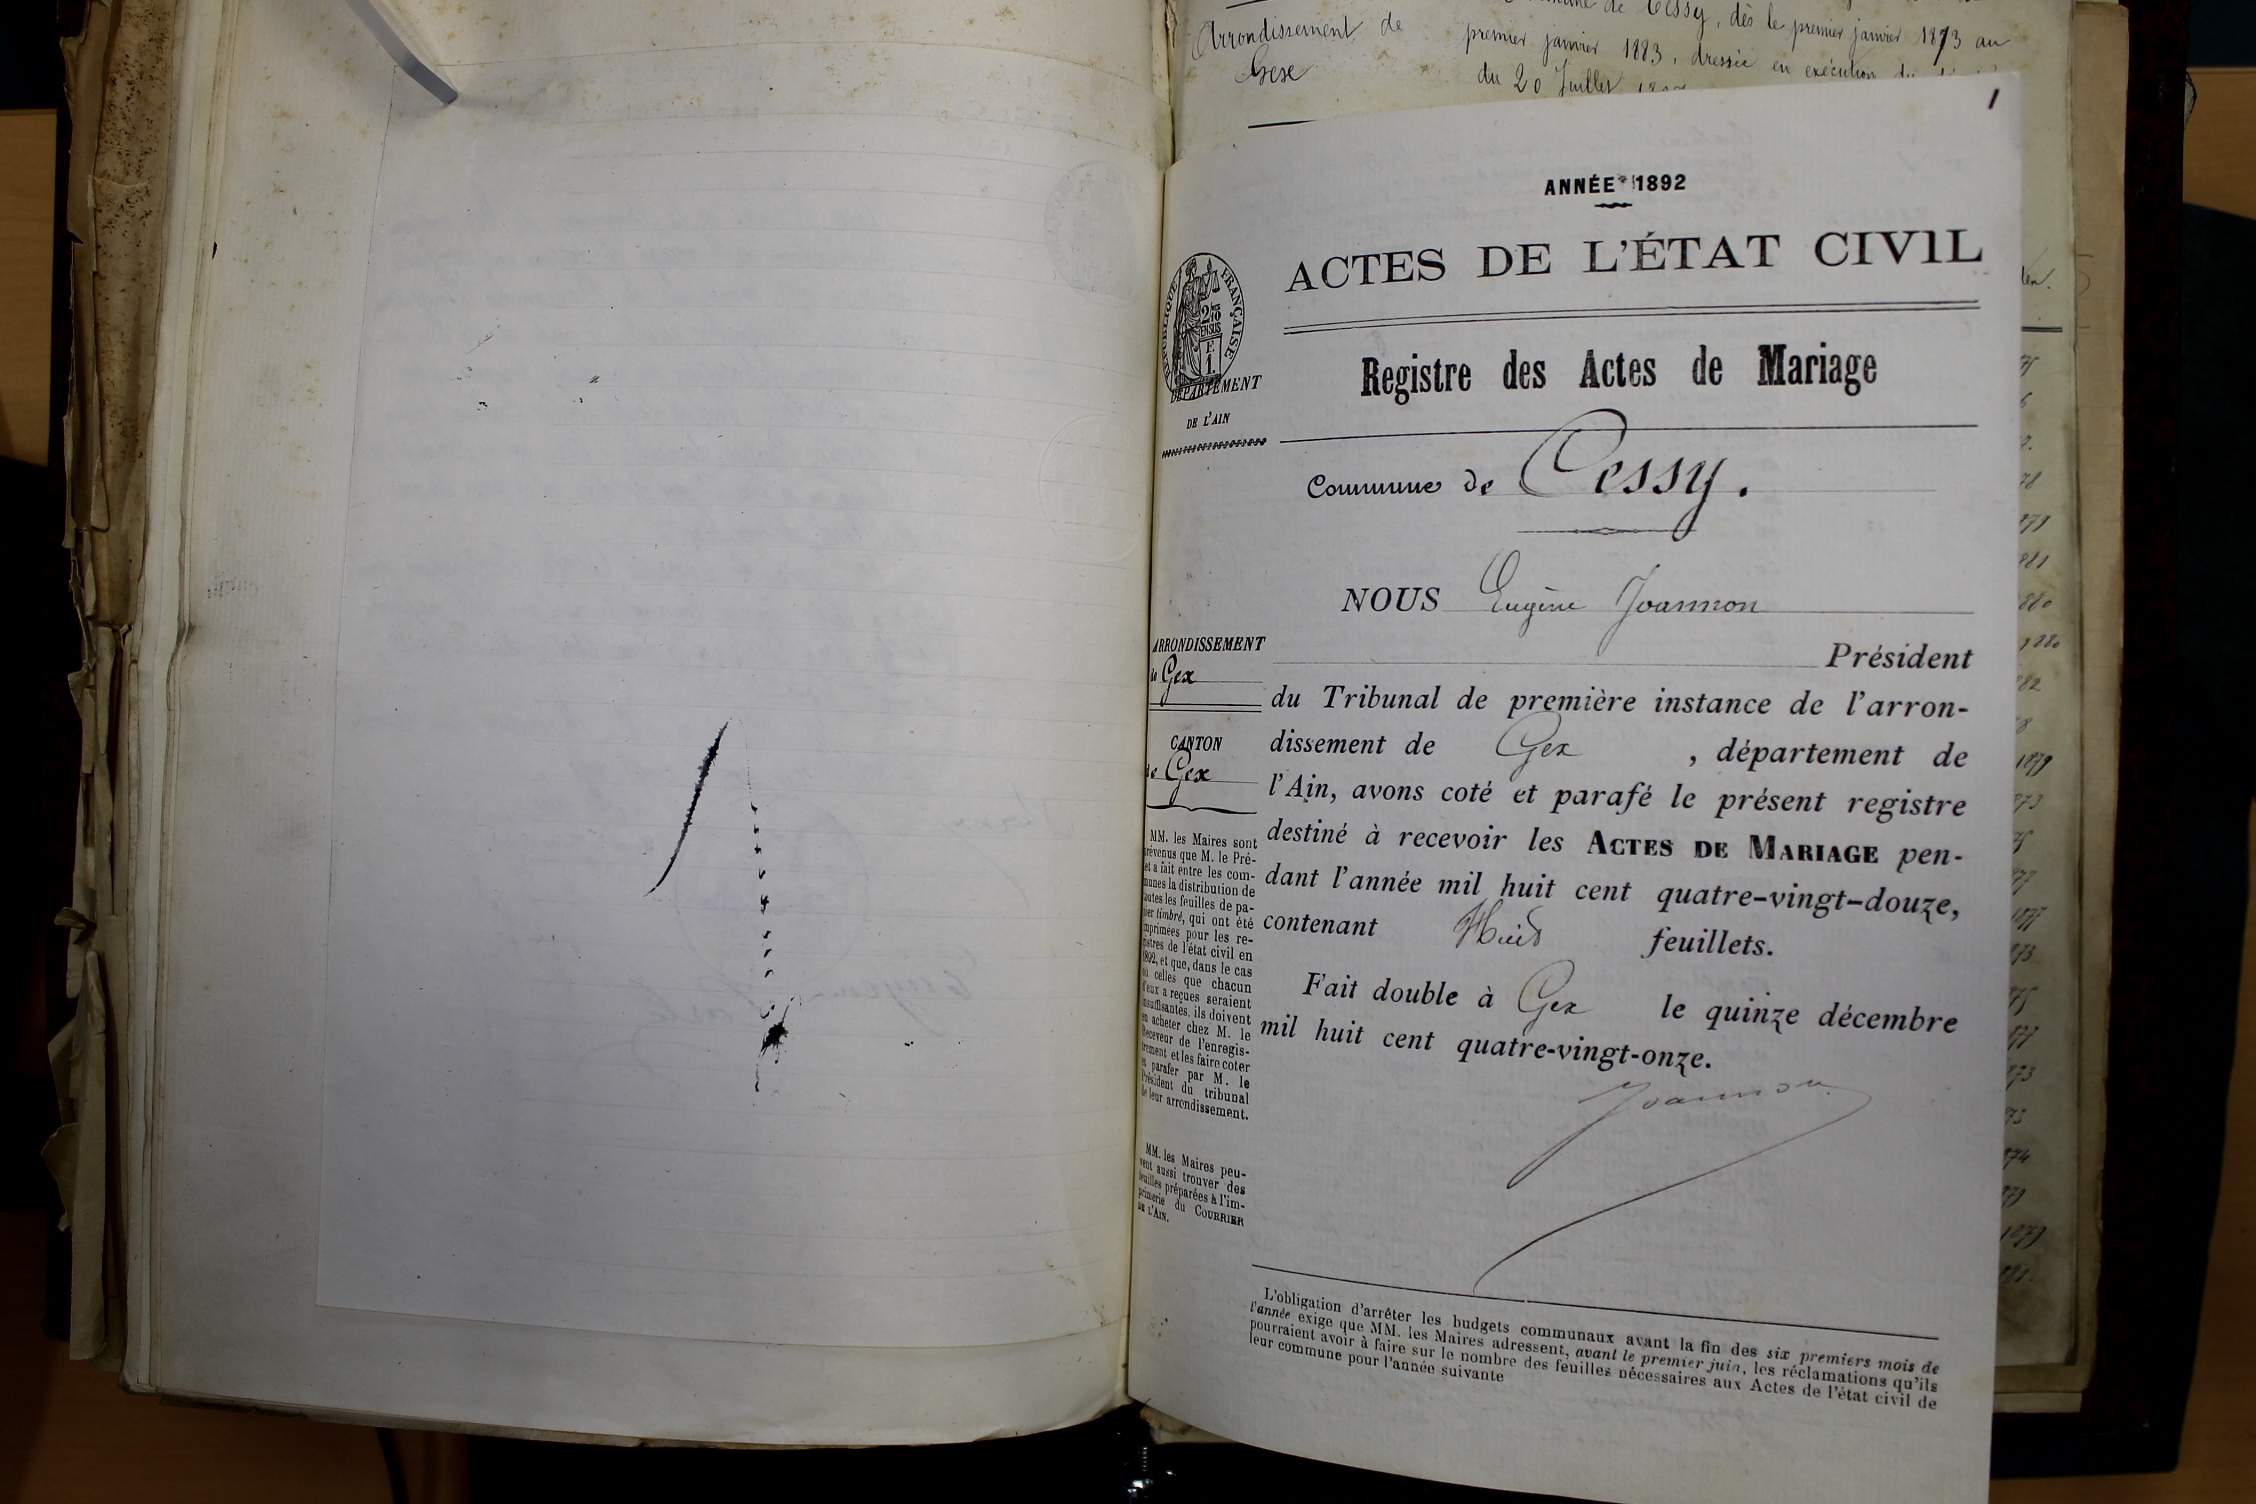 Arrondissement de
Gex
de Cessy, dès le premier janvier 1873 au
premier janvier 1883, dressée en exécution du
du 20 Juillet
1
ANNÉE 1892
ACTES DE L'ÉTAT CIVIL
RÉPUBLIQUE FRANÇAISE
DÉPARTEMENT
DE L'AIN
Registre des Actes de Mariage
Commune de Cessy.
NOUS Eugène Joannon
Président
du Tribunal de première instance de l'arron-
dissement de Gex, département de
l'Ain, avons coté et parafé le présent registre
destiné à recevoir les ACTES DE MARIAGE pen-
dant l'année mil huit cent quatre-vingt-douze,
contenant Huit feuillets.
Fait double à Gex le quinze décembre
mil huit cent quatre-vingt-onze.
Joannon
ARRONDISSEMENT
de Gex
CANTON
de Gex
MM. les Maires sont
prévenus que M. le Pré-
et a fait entre les com-
munes la distribution de
toutes les feuilles de pa-
pier timbré, qui ont été
imprimées pour les re-
gistres de l'état civil en
1892, et que, dans le cas
où celles que chacun
d'eux a reçues seraient
insuffisantes, ils doivent
en acheter chez M. le
Receveur de l'enregis-
trement et les faire coter
et parafer par M. le
Président du tribunal
de leur arrondissement.
MM. les Maires peu-
vent aussi trouver des
feuilles préparées à l'im-
primerie du COURRIER
DE L'AIN.
L'obligation d'arrêter les budgets communaux avant la fin des six premiers mois de
l'année exige que MM. les Maires adressent, avant le premier juin, les réclamations qu'ils
pourraient avoir à faire sur le nombre des feuilles nécessaires aux Actes de l'état civil de
leur commune pour l'année suivante